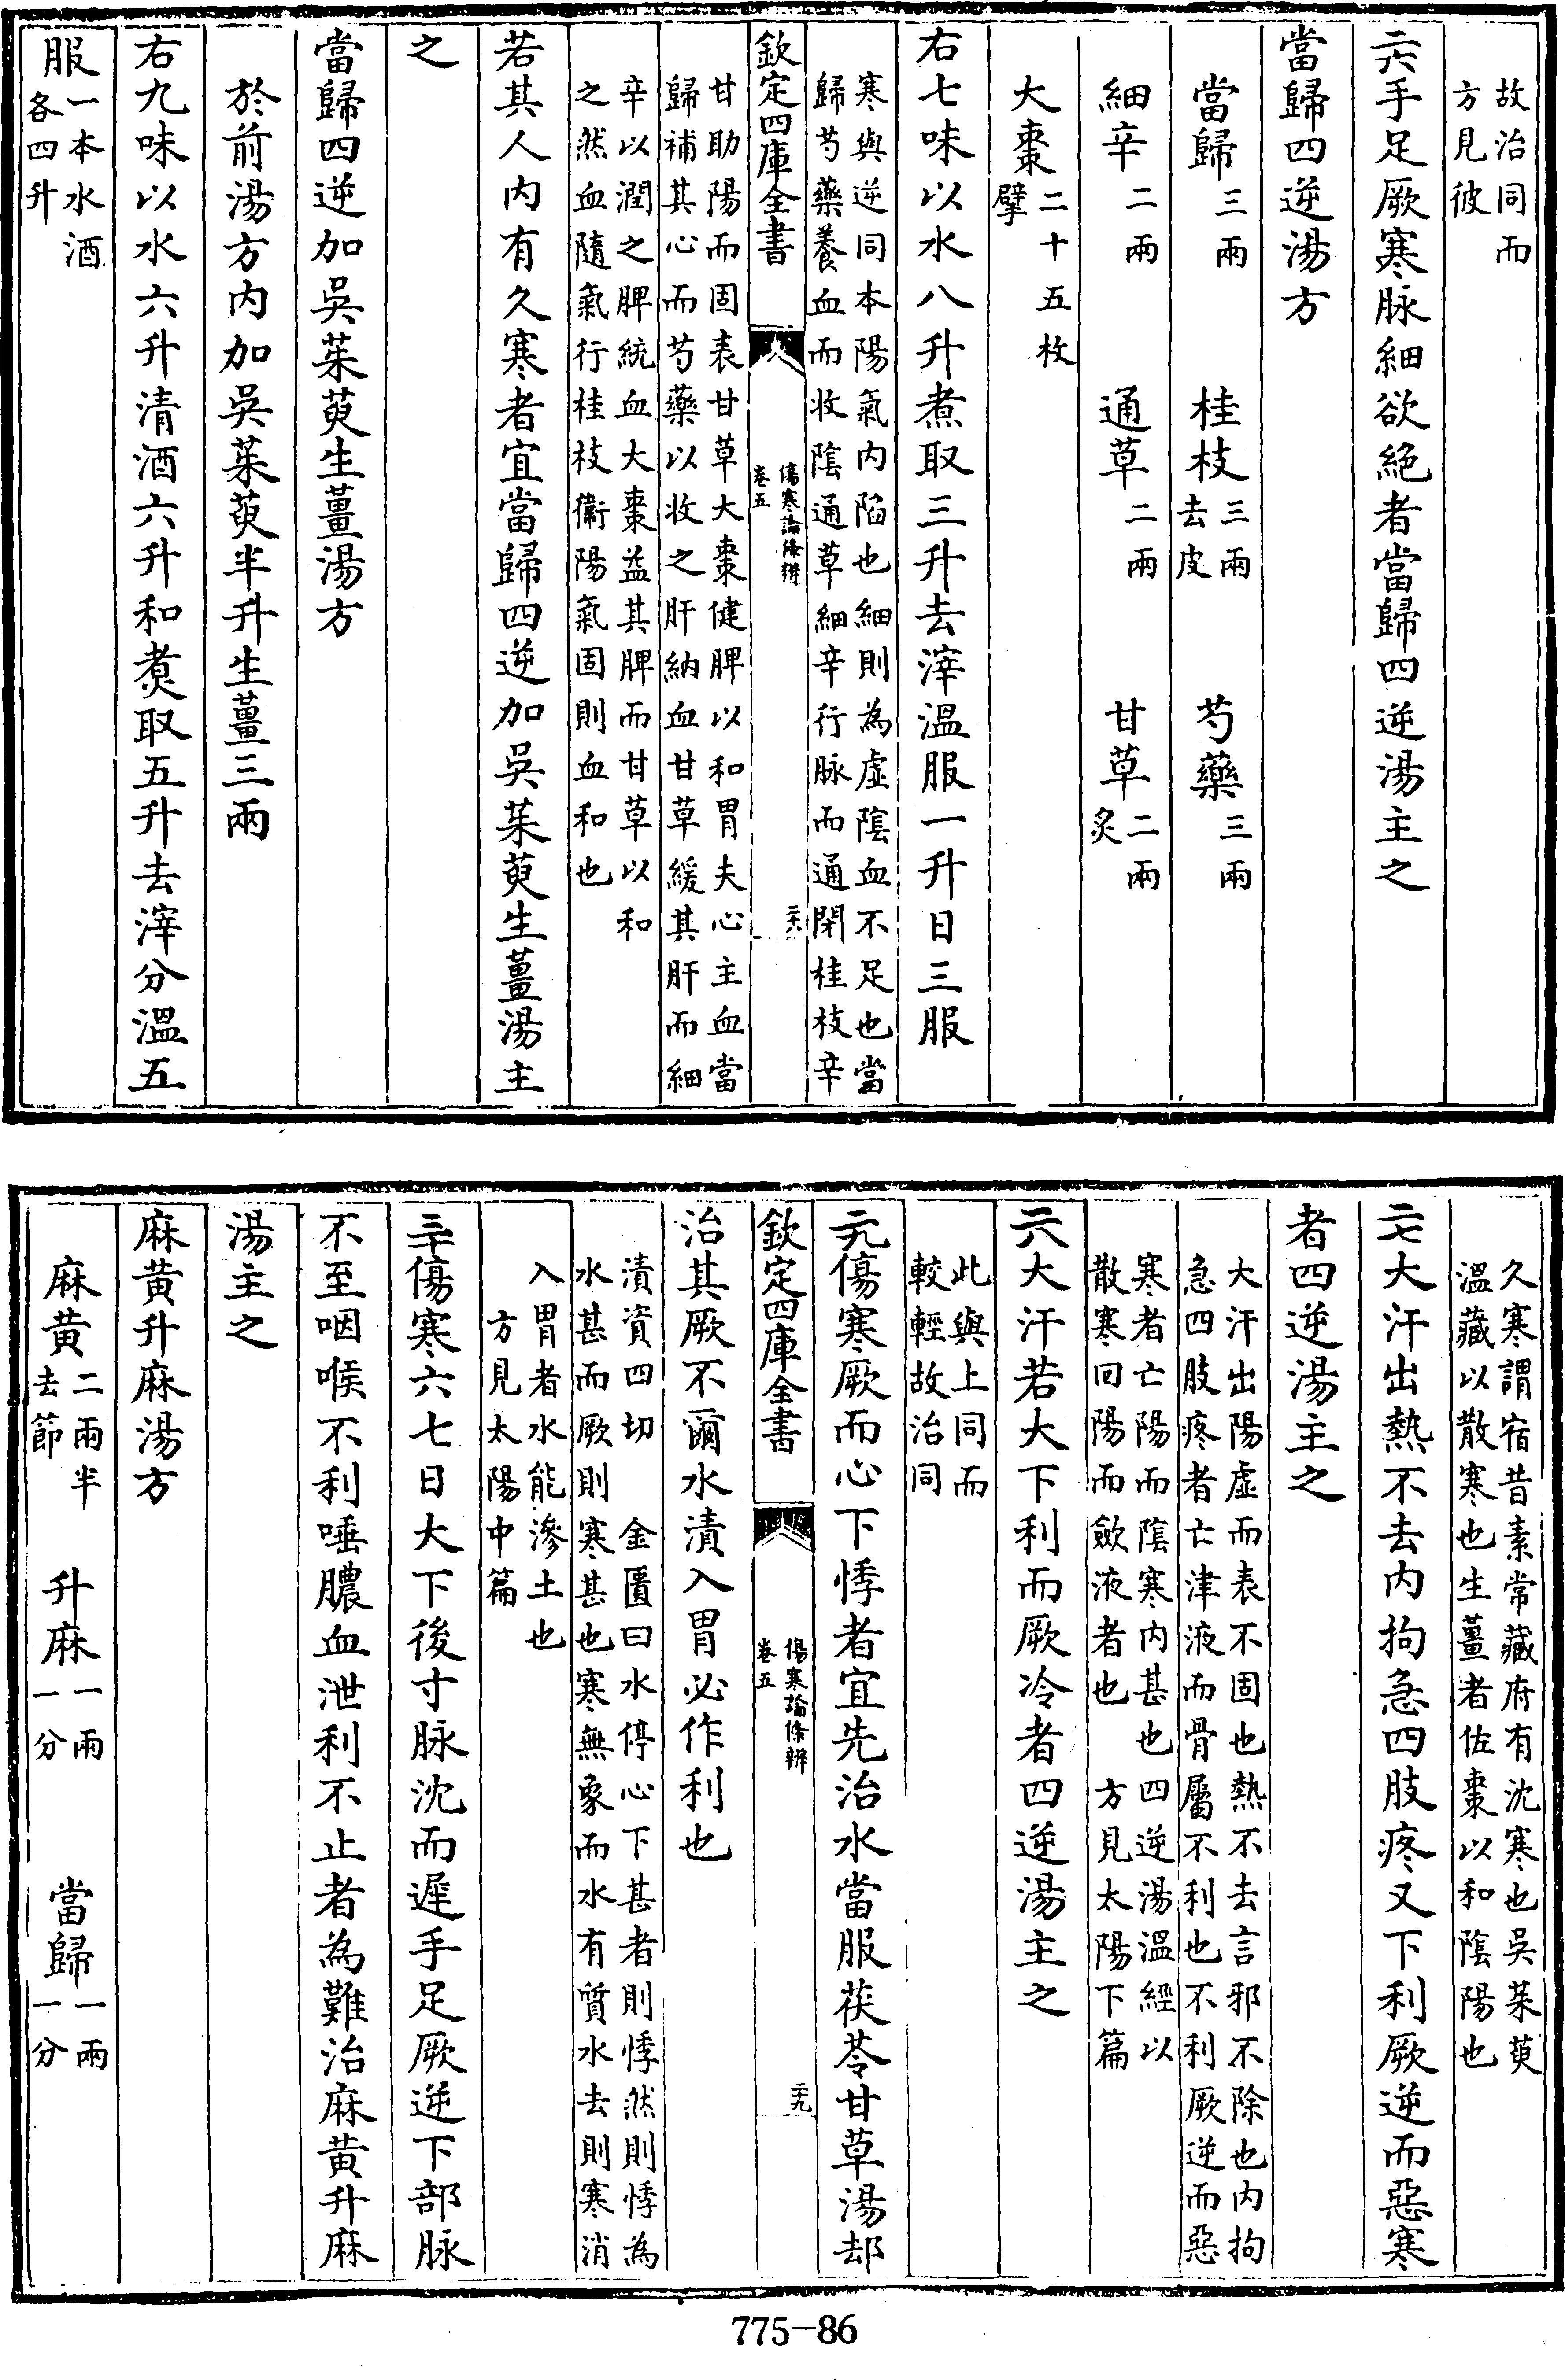 故治同而
方見彼
二六手足厥寒脉細欲絶者當歸四逆湯主之
當歸四逆湯方
當歸三兩　桂枝三兩去皮　芍藥三兩
細辛二兩　通草二兩　甘草二兩炙
大棗二十五枚擘
右七味以水八升煮取三升去滓溫服一升日三服
寒與逆同本陽氣内陷也細則為虛陰血不足也當
歸芍藥養血而收陰通草細辛行脉而通閉桂枝辛
欽定四庫全書
傷寒論條辨
卷五
二十八
甘助陽而固表甘草大棗健脾以和胃夫心主血當
歸補其心而芍藥以收之肝納血甘草緩其肝而細
辛以潤之脾統血大棗益其脾而甘草以和
之然血隨氣行桂枝衞陽氣固則血和也
若其人内有久寒者宜當歸四逆加吳茱萸生薑湯主
之
當歸四逆加吳茱萸生薑湯方
於前湯方内加吳茱萸半升生薑三兩
右九味以水六升清酒六升和煑取五升去滓分溫五
服一本水酒各四升
久寒謂宿昔素常藏府有沈寒也吳茱萸
溫藏以散寒也生薑者佐棗以和陰陽也
二七大汗出熱不去内拘急四肢疼又下利厥逆而惡寒
者四逆湯主之
大汗出陽虛而表不固也熱不去言邪不除也内拘
急四肢疼者亡津液而骨屬不利也不利厥逆而惡
寒者亡陽而陰寒内甚也四逆湯溫經以
散寒回陽而斂液者也　方見太陽下篇
二八大汗若大下利而厥冷者四逆湯主之
此與上同而
較輕故治同
二九傷寒厥而心下悸者宜先治水當服茯苓甘草湯却
欽定四庫全書
傷寒論條辨
卷五
二十九
治其厥不爾水漬入胃必作利也
漬資四切　金匱曰水停心下甚者則悸然則悸為
水甚而厥則寒甚也寒無象而水有質水去則寒消
入胃者水能滲土也
方見太陽中篇
三十傷寒六七日大下後寸脉沈而遲手足厥逆下部脉
不至咽喉不利唾膿血泄利不止者為難治麻黄升麻
湯主之
麻黄升麻湯方
麻黄二兩半去節　升麻一兩一分　當歸一兩一分
775-86